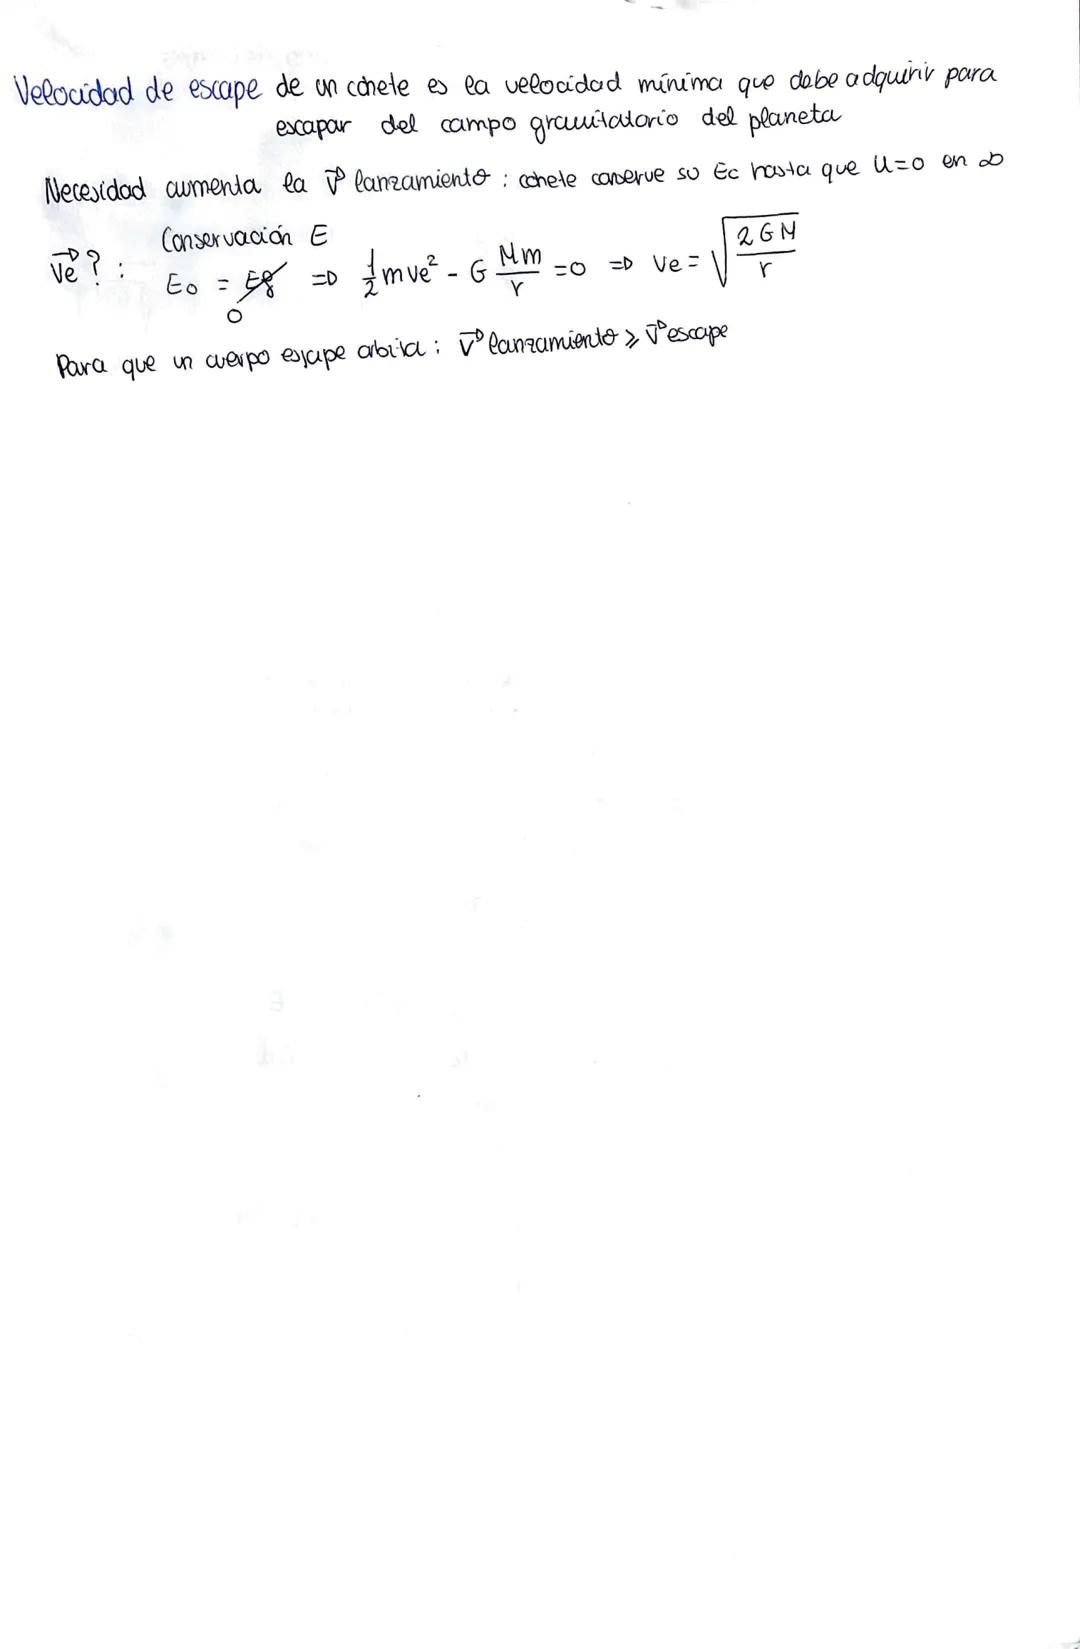 Velocidad de escape de un cohete es la velocidad mínima que debe adquirir para
escapar del campo gravitatorio del planeta
Necesidad aumenta la v⃗ lanzamiento : cohete conserve su Ec hasta que U=0 en ∞
Conservación E
v⃗e? : E0 = Ef => 1/2 mve² - G Mm/r = 0 => ve = √(2GM/r)
0
Para que un cuerpo escape orbita : v⃗ lanzamiento ≥ v⃗ escape